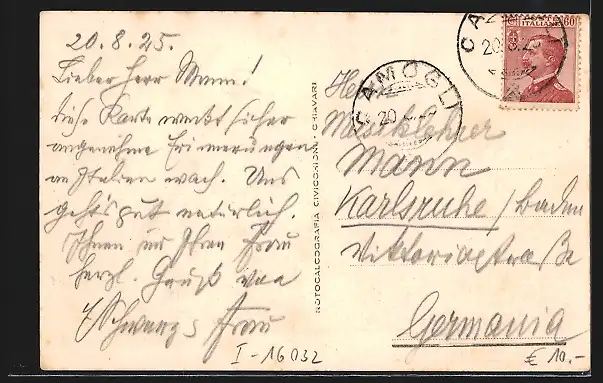 20.8.25.
Lieber Herr Mann!
diese Karte weckt sicher
angenehme Erinnerungen
an Italien wach. Uns
geht's gut natürlich.
Ihnen und Ihrer Frau
herzl. Gruß von
Schwarz u Frau
I-16032
ROTOCALCOGRAFIA CIVICCHIONI - CHIAVARI
CAMOGLI
20.8.25
POSTE ITALIANE 60
Herrn
Musiklehrer
Mann
Karlsruhe / Baden
Viktoriastraße
Germania
€ 10.-